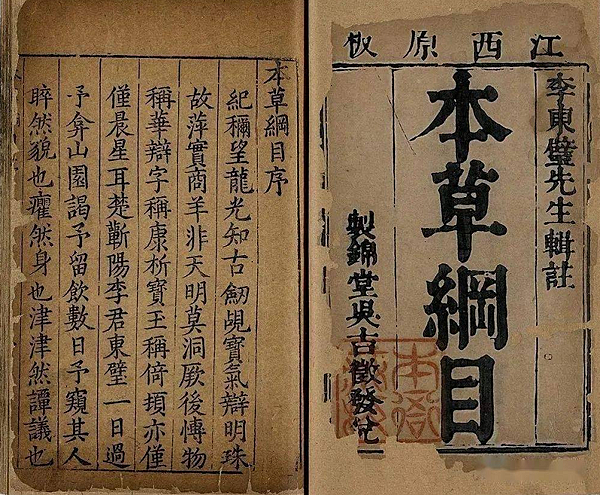 江西原板
李東璧先生輯註
本草綱目
製錦堂吳古徵發兌
本草綱目序
紀穪望龍光知古劒覘寶氣辯明珠
故萍實商羊非天明莫洞厥後慱物
稱華辯字稱康析寶玉稱倚頓亦僅
僅晨星耳楚蘄陽李君東璧一日過
予弇山園謁予留飲數日予窺其人
睟然貌也癯然身也津津然譚議也